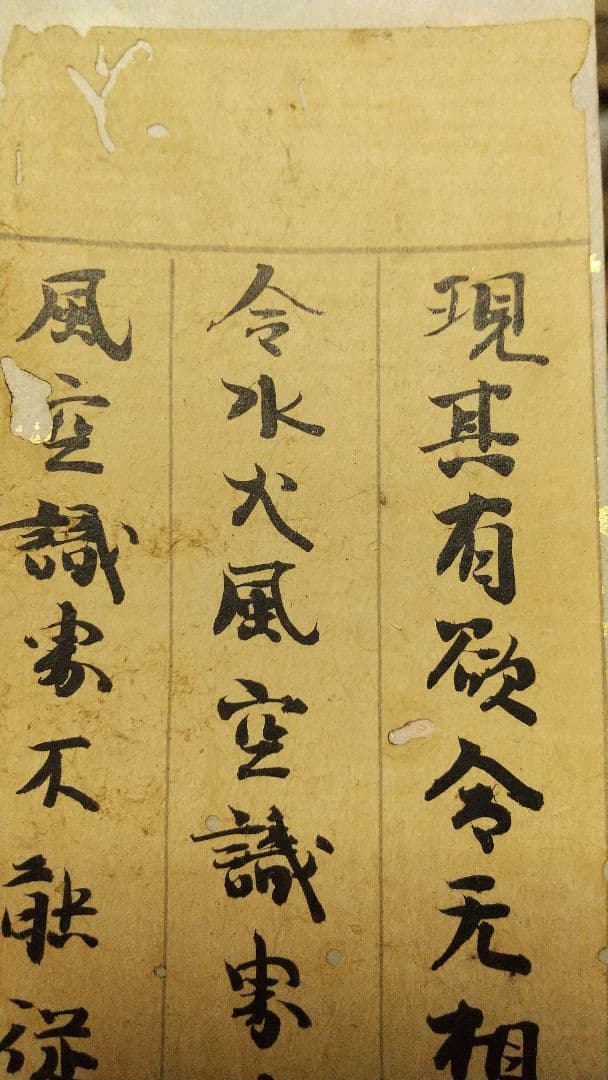 現其有欲令无相
令水火風空識界
風空識界不能從